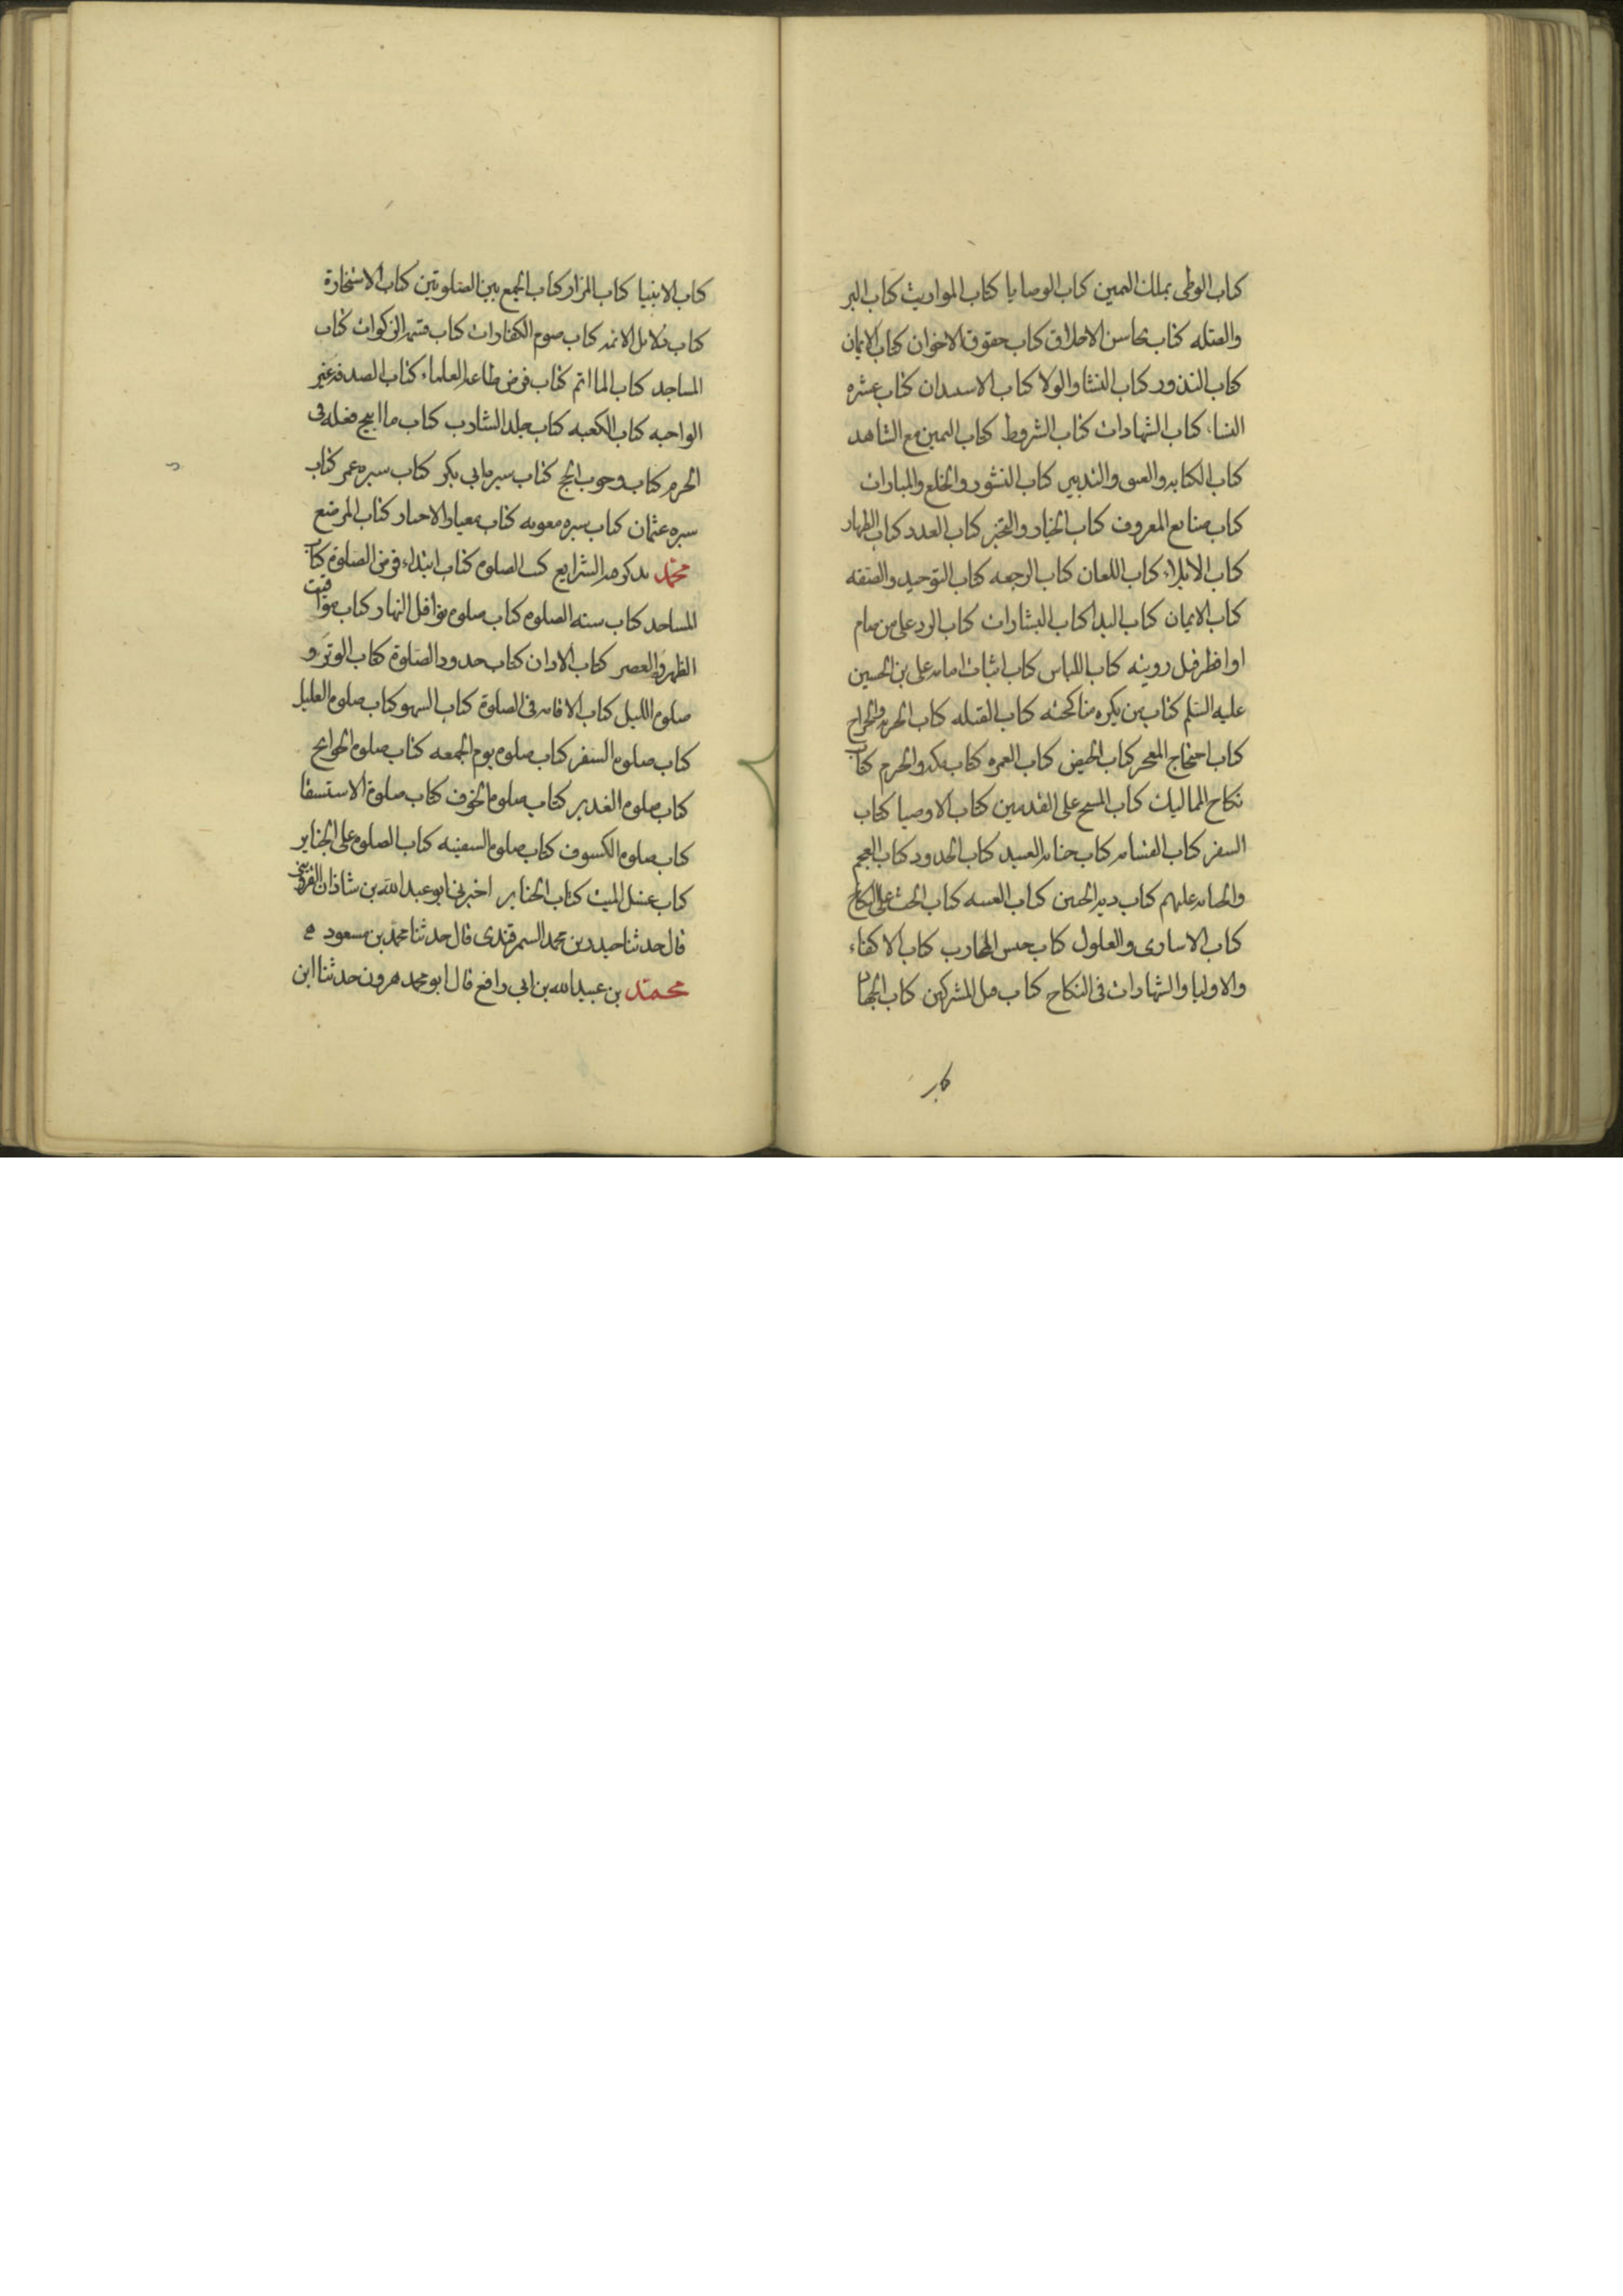 كتاب الوطى بملك اليمين كتاب الوصايا كتاب المواريث كتاب البر
والصله كتاب محاسن الاخلاق كتاب حقوق الاخوان كتاب الايمان
كتاب النذور كتاب النشا والولا كتاب الاسيدان كتاب عشره
النساء كتاب الشهادات كتاب الشروط كتاب اليمين مع الشاهد
كتاب الكتابه والعتق والتدبير كتاب النشوز والخلع والمبارات
كتاب صنايع المعروف كتاب الخيار والتخير كتاب العدد كتاب الظهار
كتاب الايلاء كتاب اللعان كتاب الرجعه كتاب التوحيد والصفه
كتاب الايمان كتاب البدا كتاب البشارات كتاب الرد على من صام
او افطر قبل رويته كتاب اللباس كتاب اثبات امامه على بن الحسين
عليه السلم كتاب من يكره مناكحته كتاب القبله كتاب الجزيه والخراج
كتاب احتجاج المعجز كتاب الحيض كتاب العمره كتاب مكه والحرم كتاب
نكاح المماليك كتاب المسح على القدمين كتاب الاوصيا كتاب
السفر كتاب القسامه كتاب جنايه العبيد كتاب الحدود كتاب العجم
والجنايه عليهم كتاب ديه الجنين كتاب الغيبه كتاب الحث على النكاح
كتاب الاسارى والغلول كتاب حبس المحارب كتاب الاكفاء
والاوليا والشهادات فى النكاح كتاب قتل المشركين كتاب الجهاد
كتاب الانبيا كتاب المزار كتاب الجمع بين الصلوتين كتاب الاستخارة
كتاب دلايل الائمه كتاب صوم الكفارات كتاب قسمه الزكوات كتاب
المساجد كتاب الماتم كتاب فرض طاعه العلماء كتاب الصدقه غير
الواجبه كتاب الكعبه كتاب جلد الشارب كتاب ما ابيح قتله فى
الحرم كتاب وجوب الحج كتاب سيره ابي بكر كتاب سيره عمر كتاب
سيره عثمان كتاب سيره معويه كتاب معيار الاخبار كتاب الموضع
محمد يذكر فيه الشرايع كتب الصلوه كتاب ابتداء فرض الصلوة كتاب
المساجد كتاب سنه الصلوه كتاب صلوه نوافل النهار كتاب مواقيت
الظهر والعصر كتاب الاذان كتاب حدود الصلوة كتاب الوتر و
صلوه الليل كتاب الاقامه فى الصلوة كتاب السهو كتاب صلوه العليل
كتاب صلوه السفر كتاب صلوه يوم الجمعه كتاب صلوه الحوايج
كتاب صلوه الغدير كتاب صلوه الخوف كتاب صلوة الاستسقا
كتاب صلوه الكسوف كتاب صلوه السفينه كتاب الصلوه على الجنايز
كتاب غسل الميت كتاب الجنايز اخبرنى ابو عبد الله بن شاذان القزوينى
قال حدثنا حيدر بن محمد السمرقندى قال حدثنا محمد بن مسعود
محمد بن عبيد الله بن ابى رافع قال ابو محمد هرون حدثنا ابن